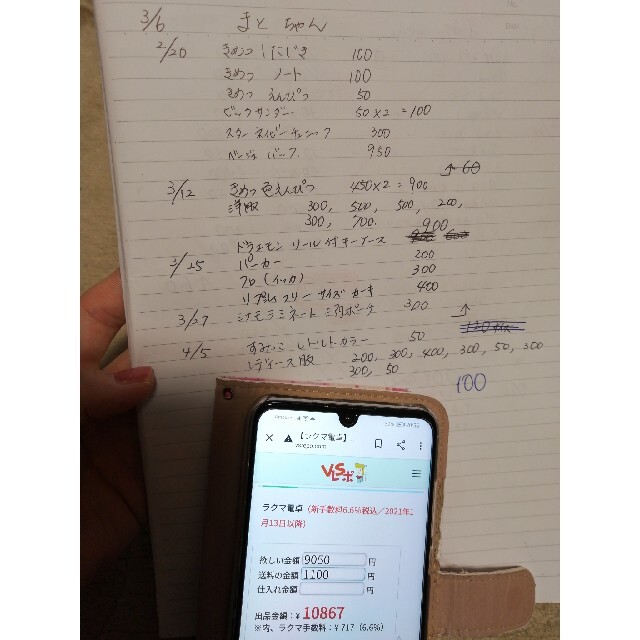 3/6 まとちゃん
2/20 きめつ したじき 100
きめつ ノート 100
きめつ えんぴつ 50
ビックサンダー 50×2=100
300
950
↑ 60
3/12 きめつ 色えんぴつ 450×2=900
洋服 300, 500, 500, 200,
300, 700.
ドラエモン リール付キーケース 900
パーカー 200
300
フリーサイズ 400
3/27 ラミネート 三角ポーチ 300 ↑
4/5 すみっこ レトルトカラー 50
レディース服 200, 300, 400, 300, 50, 300
300, 50
100
【ラクマ電卓】
ラクマ電卓(新手数料6.6%税込/2021年1
月13日以降)
欲しい金額 9050 円
送料の金額 1100 円
仕入れ金額 円
出品金額:¥ 10867
※内、ラクマ手数料:¥717 (6.6%)